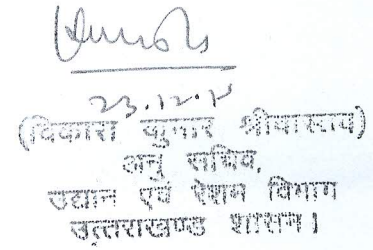 23.12.
(विकास कुमार श्रीवास्तव)
अनु सचिव,
उद्यान एवं रेशम विभाग
उत्तराखण्ड शासन।